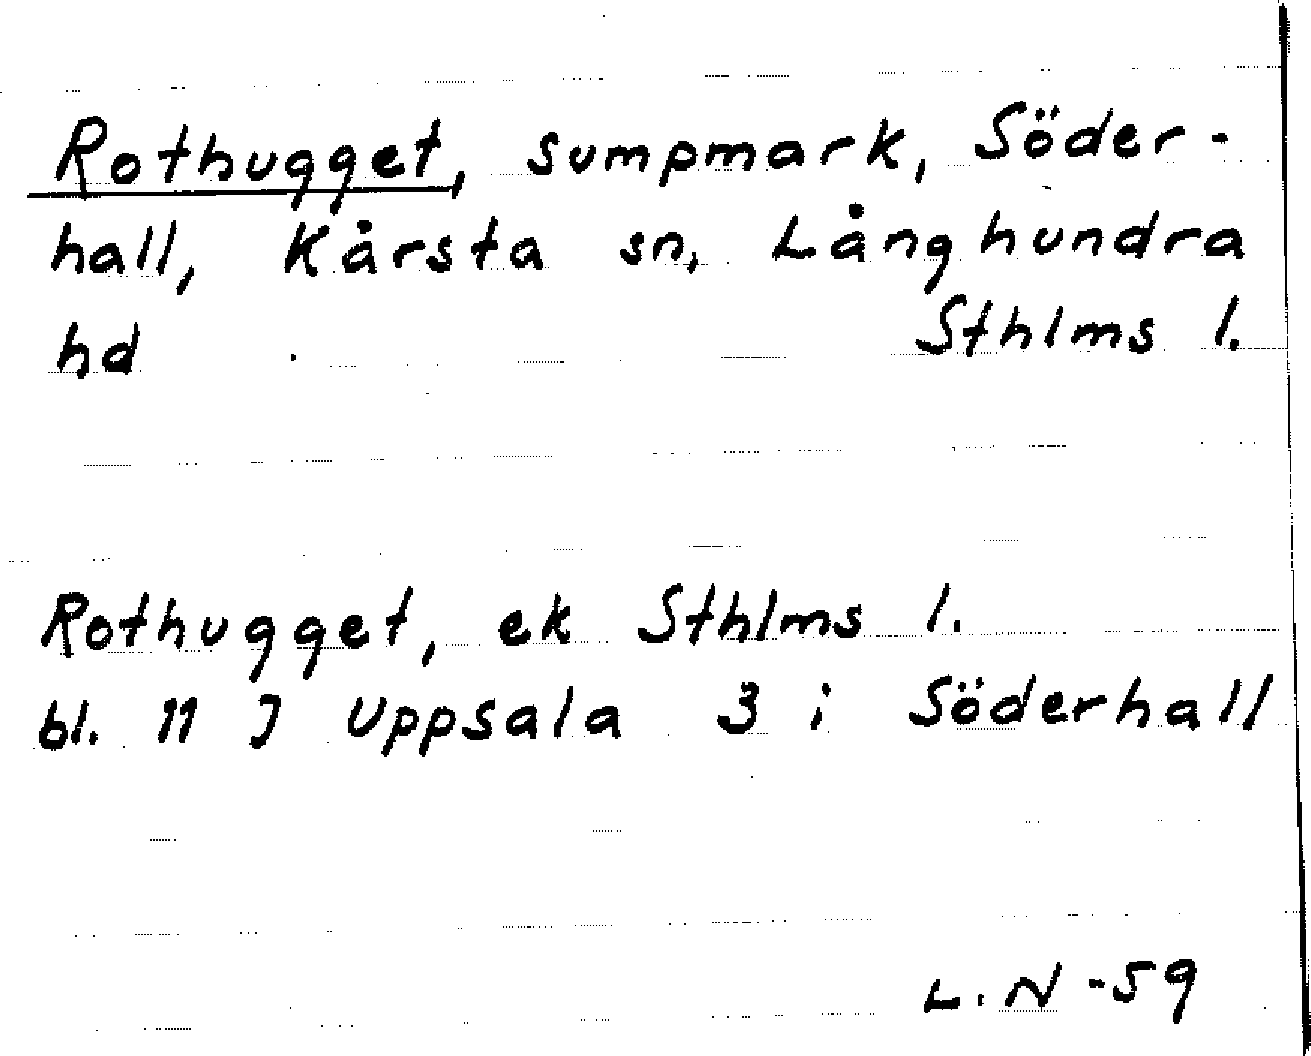 Rothugget, sumpmark, Söder-
hall, Kårsta sn, Långhundra
hd Sthlms l.
Rothugget, ek Sthlms l.
bl. 11 J Uppsala 3 i Söderhall
L. N -59